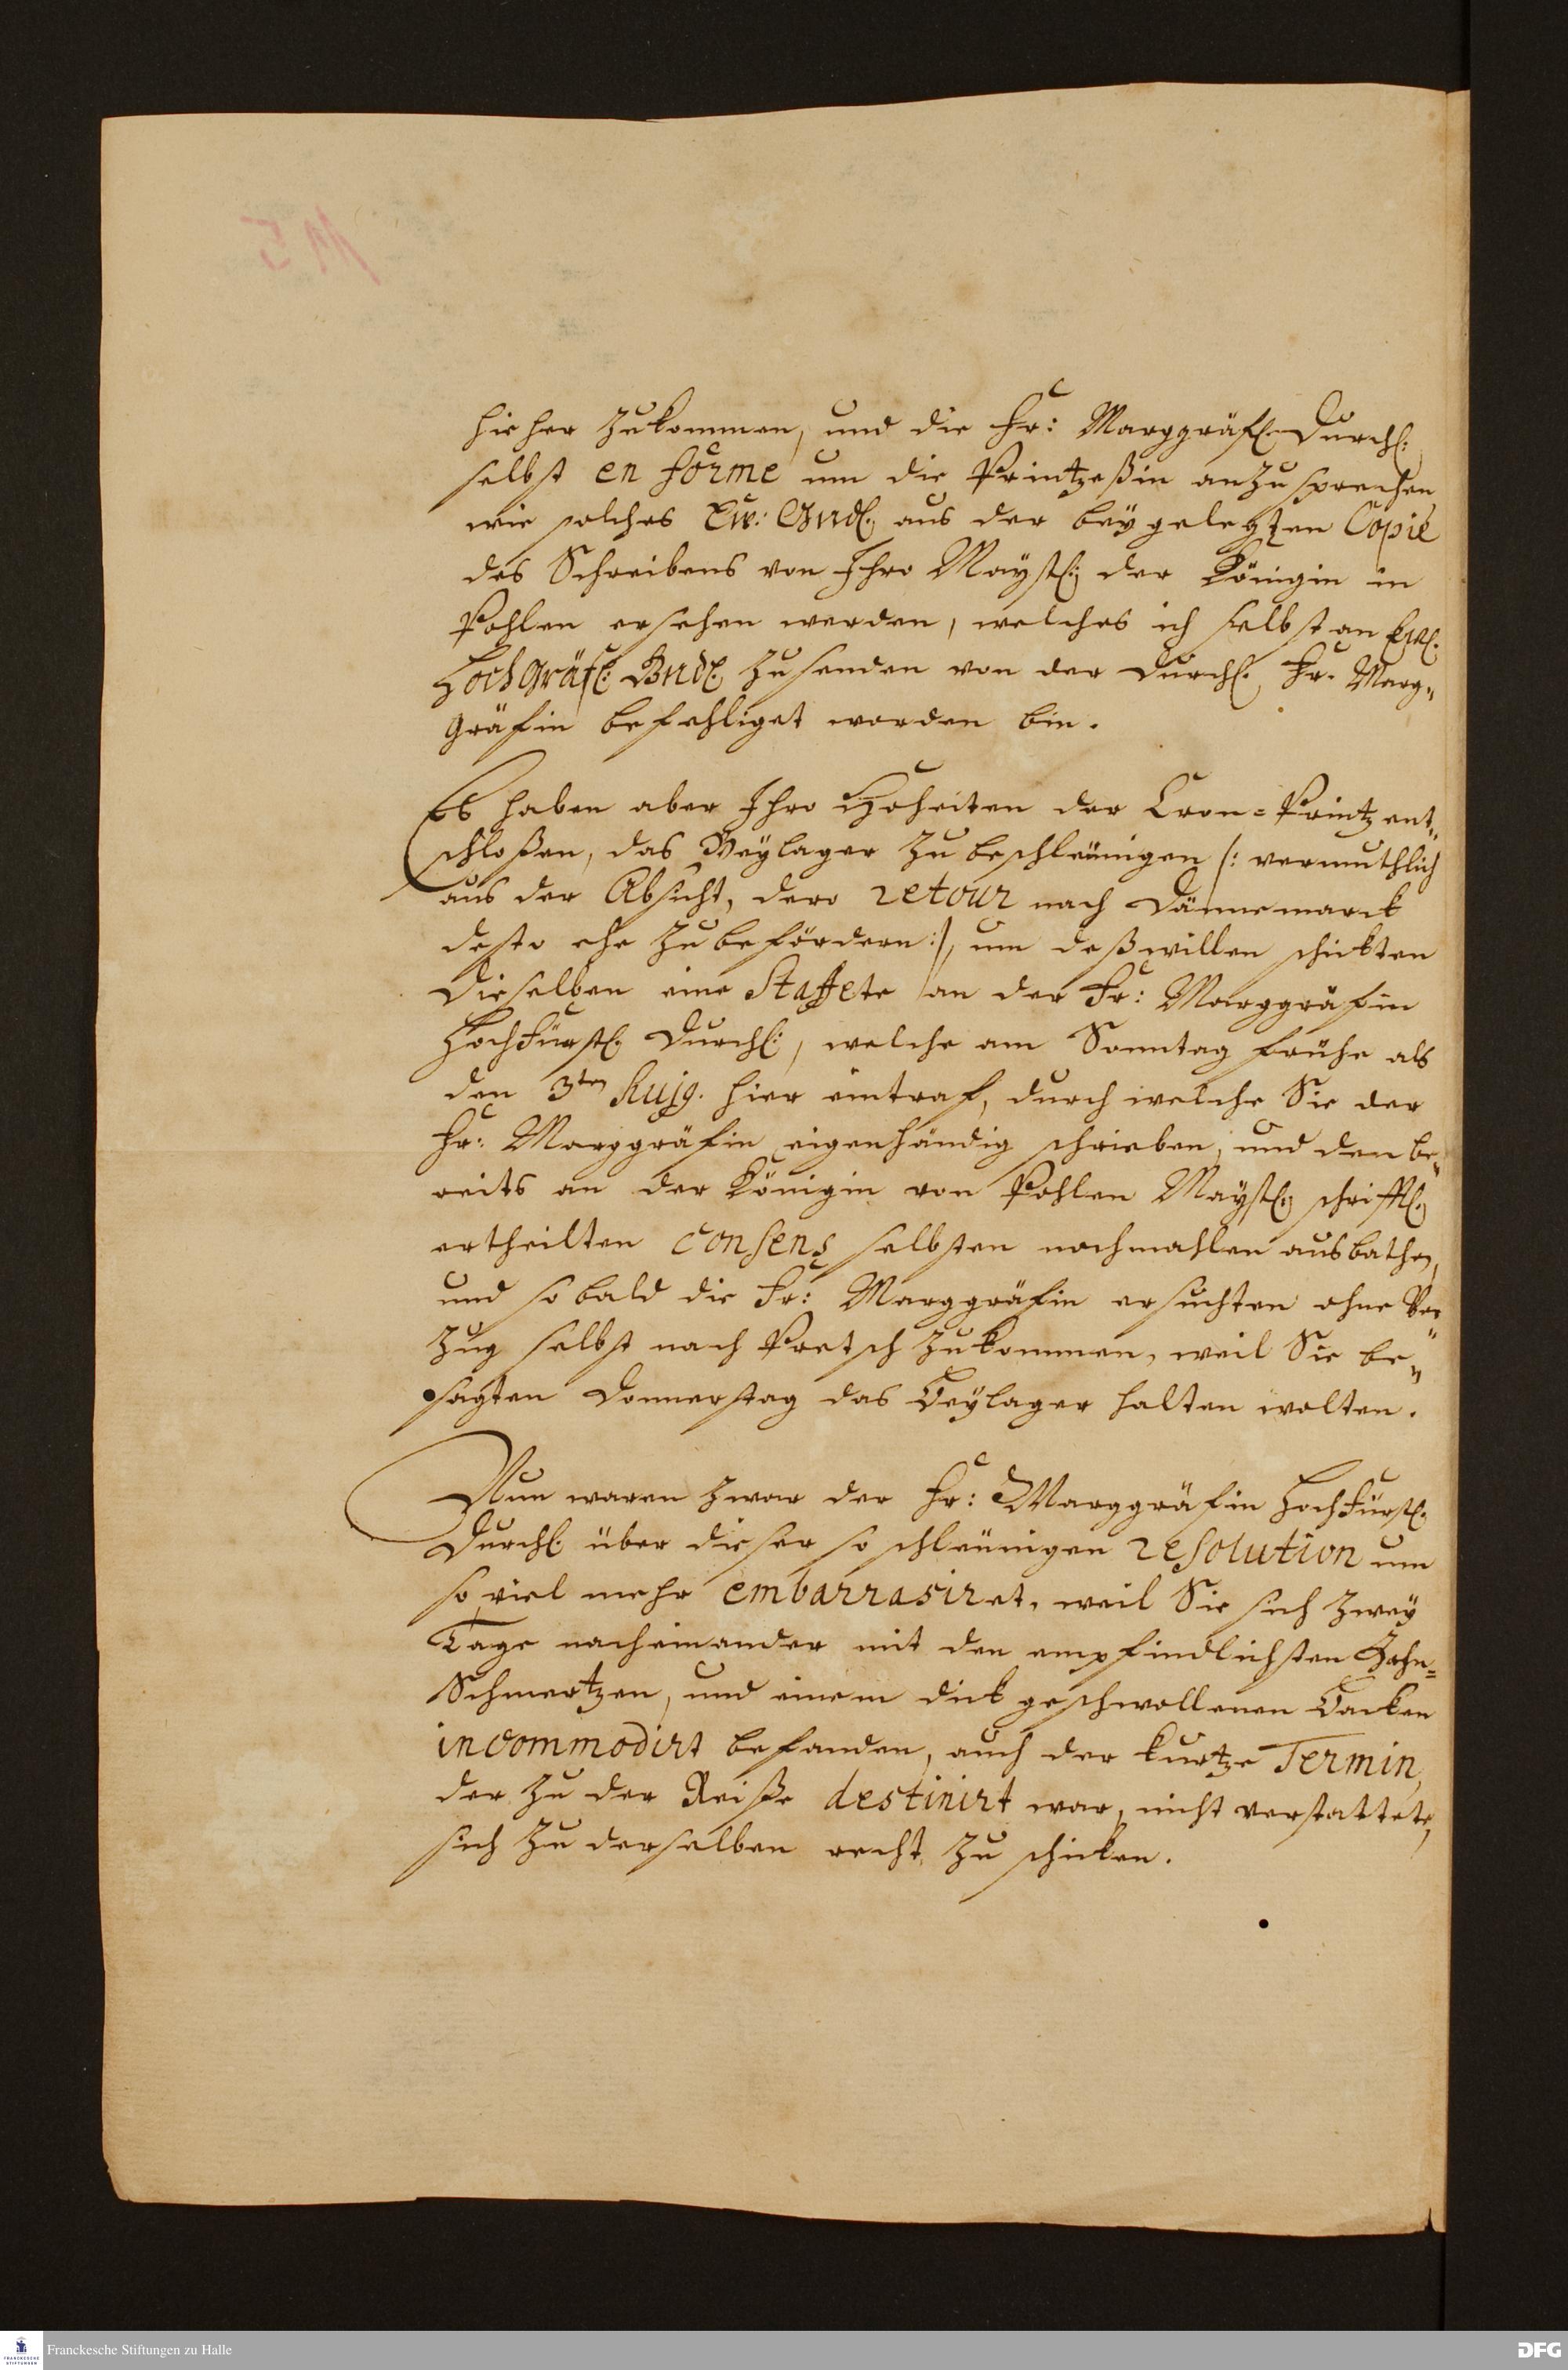 hieher zu kommen, und die Fr: Marggräfl. Durchl:
selbst en forme um die Printzeßin anzusprechen
wie solches Ew: Gnd. aus der beygelegten Copie
des Schreibens von Ihro Mayst. der Königin in
Pohlen ersehen werden, welches ich selbst an Ew.
HochGräfl: Gnd. zu senden von der Durchl. Fr. Marg„
gräfin befehliget worden bin.
Es haben aber Ihro Hoheiten der Cron=Printz ent„
schloßen, das Beylager zu beschleunigen /: vermuthlich
aus der Absicht, dero retour nach Dännemarck
desto ehe zu befördern :/, um deßwillen schickten
Dieselben eine Staffete an der Fr: Marggräfin
HochFürstl. Durchl:, welche am Sonntag frühe als
den 3ten hujg. hier eintraf, durch welche Sie der
Fr: Marggräfin eigenhändig schrieben, und den be„
reits an der Königin von Pohlen Mayst. schrifftl.
ertheilten consens selbsten nochmahlen ausbathen,
und sobald die Fr: Marggräfin ersuchten ohne Ver„
zug selbst nach Pretsch zu kommen, weil Sie be„
sagten Donnerstag das Beylager halten wolten.
Nun waren zwar der Fr: Marggräfin HochFürstl.
Durchl. über dieser so schleunigen resolution um
so viel mehr embarrasiret, weil Sie sich zwey
Tage nacheinander mit den empfindlichsten Zahn=
Schmertzen, und einem dick geschwollenen Backen
incommodirt befanden, auch der kurtze Termin,
der zu der Reiße destinirt war, nicht verstattete,
sich zu derselben recht zu schicken.
115
Franckesche Stiftungen zu Halle
FRANCKESCHE
STIFTUNGEN
DFG